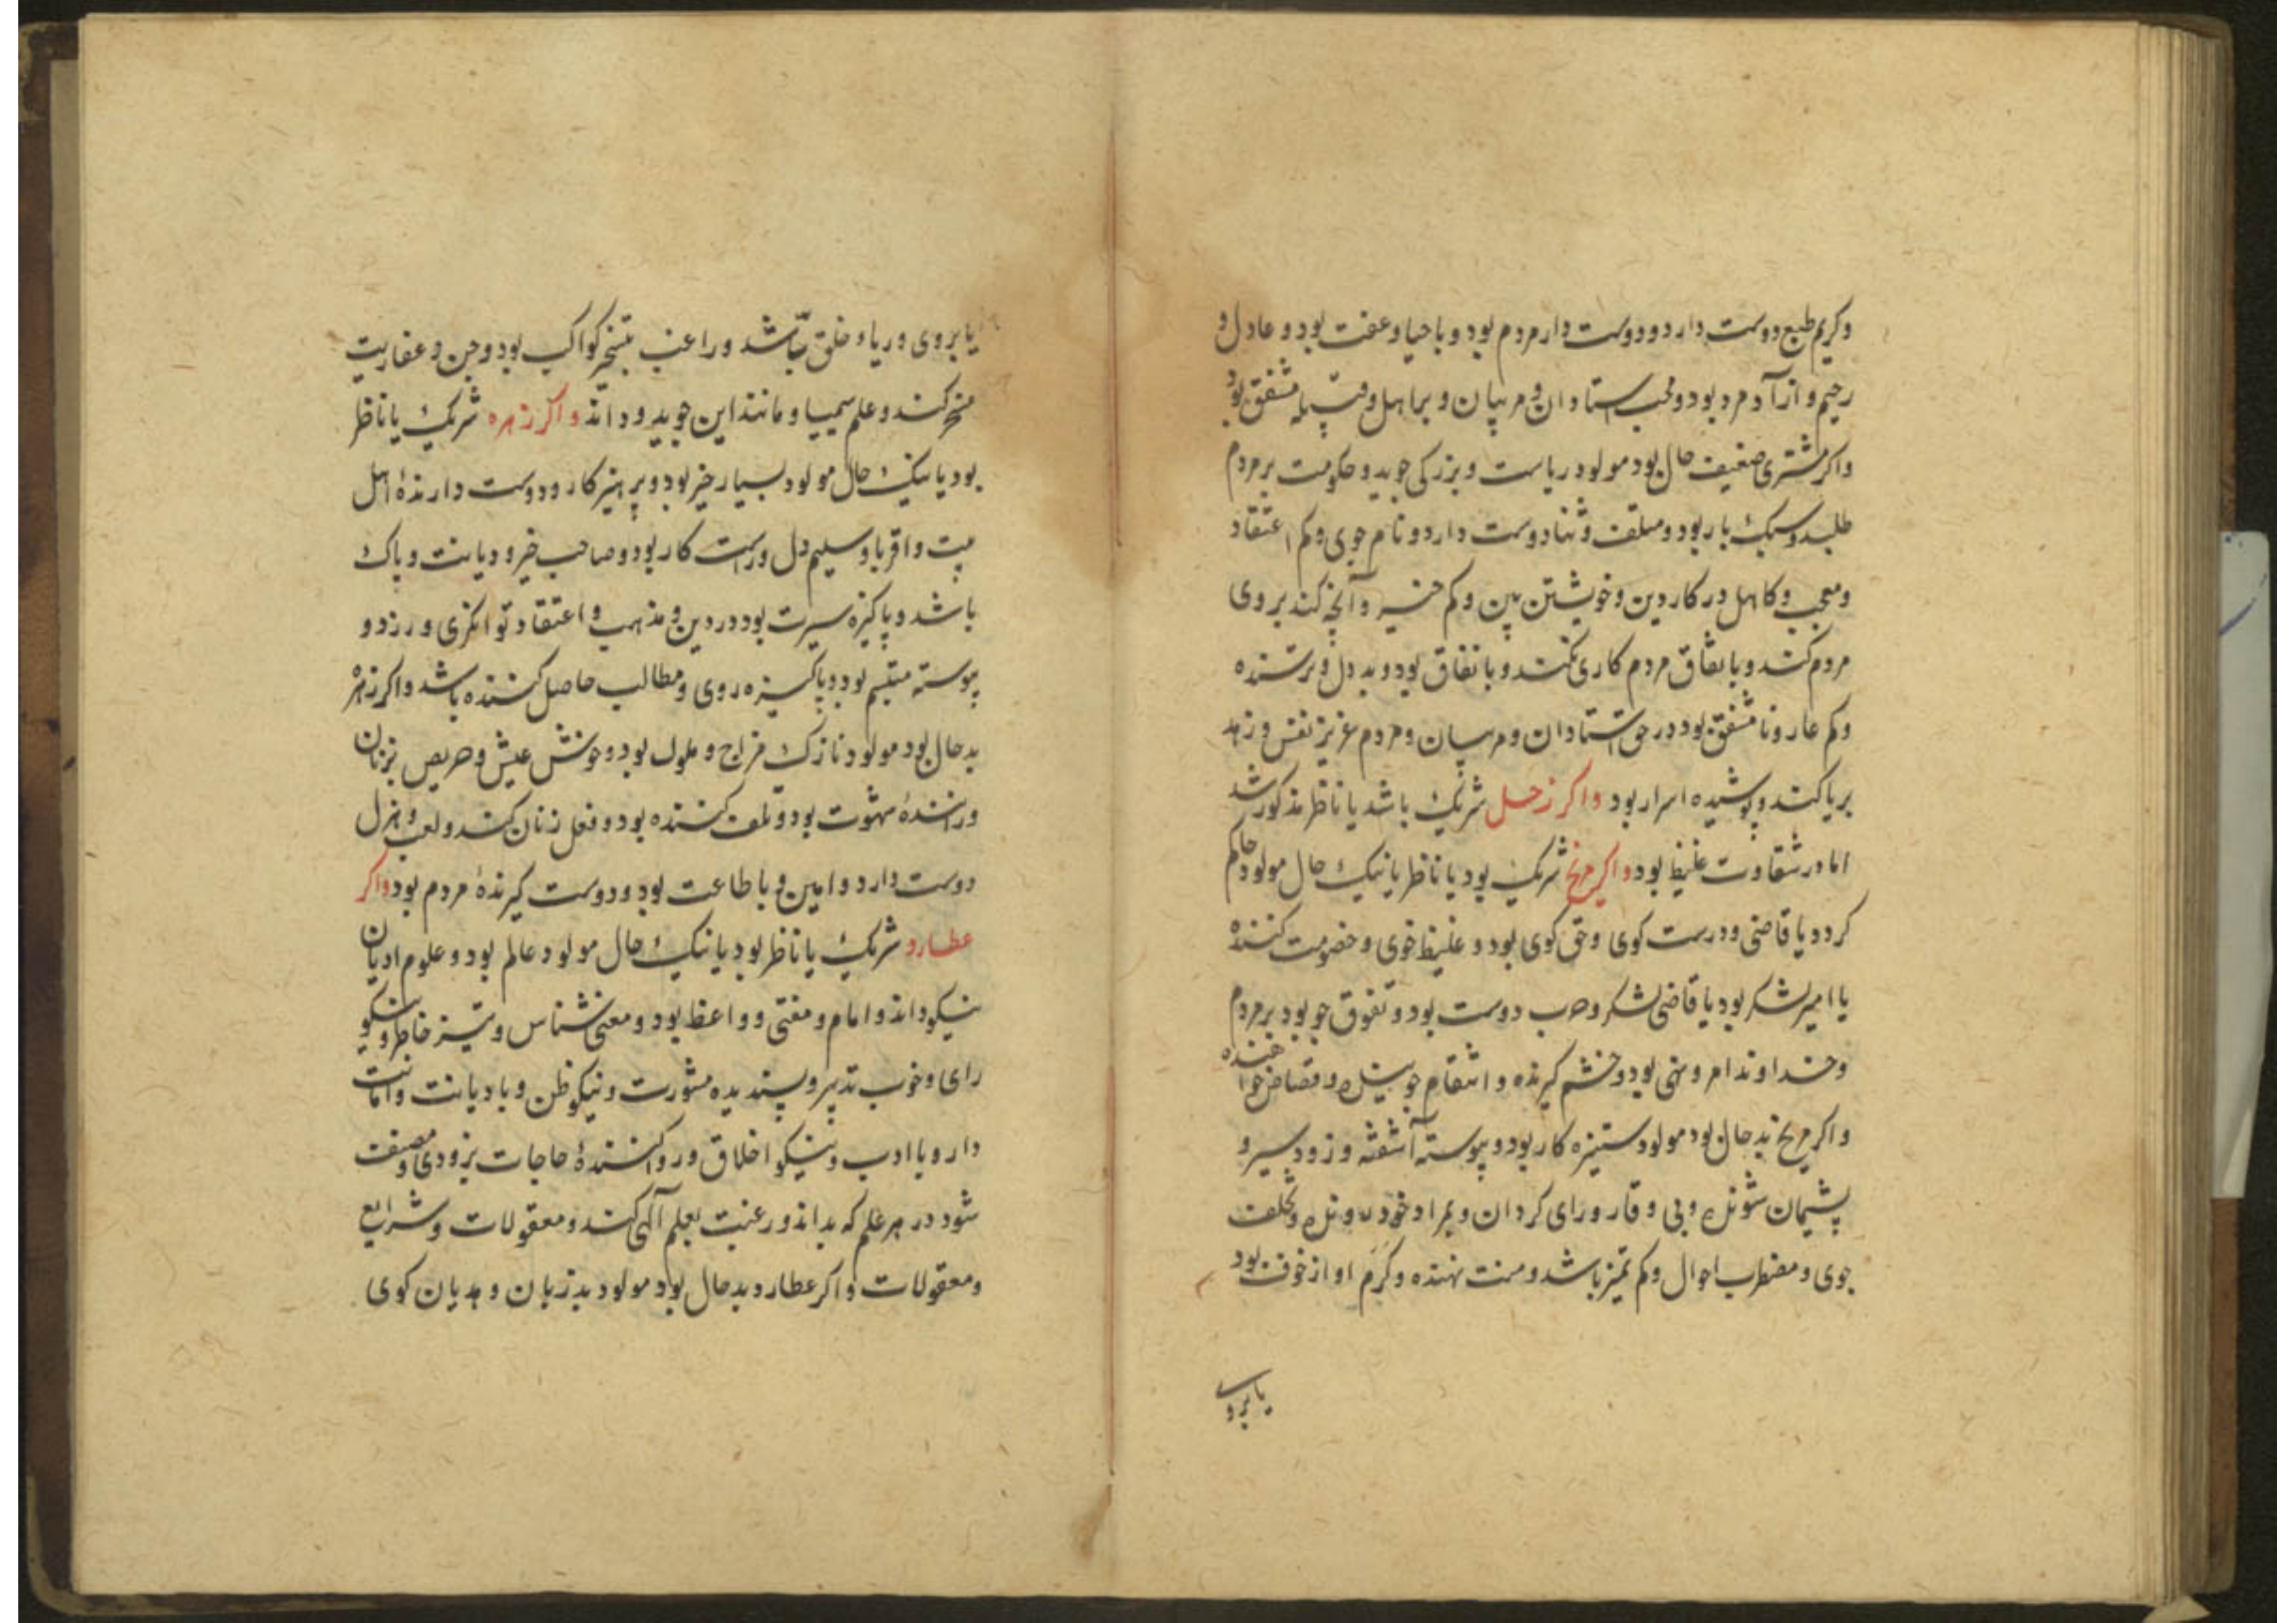 وکریم طبع دوست دارد و دوست دار مردم بود و با حیا و عفت بود و عادل و
رحیم و ازآد مرد بود و محب استادان و مربیان و بر اهل و قبیله مشفق بود
واکر مشتری ضعیف حال بود مولود ریاست و بزرکی جوید و حکومت بر مردم
طلبد و سبک بار بود و متملق و ثنا دوست دارد و نام جوی و کم اعتقاد
و معجب و کاهل در کار دین و خویشتن بین و کم خیر و آنچه کند بروی
مردم کند و باتفاق مردم کاری نکند و با نفاق بود و بد دل و ترسنده
و کم عار و نا مشفق بود در حق استادان و مربیان و مردم عزیز نفس و زهد
بریا کند و پوشیده اسرار بود واکر زحل شریک باشد یا ناظر مذکور شد
اما در شقاوت غلیظ بود واکر مریخ شریک بود یا ناظر یا نیک حال مولود حاکم
کردد یا قاضی و درست کوی و حق کوی بود و غلیظ خوی و خصومت کننده
یا امیر لشکر بود یا قاضی لشکر و حرب دوست بود و تفوق جو بود بر مردم
و خداوند امر و نهی بود و خشم کیرنده و انتقام جوینده و قصاص خواهنده
واکر مریخ بد حال بود مولود ستیزه کار بود و پیوسته آشفته و زود سیر و
پشیمان شونده و بی وقار و رای کردان و بمراد خود رونده و تکلف
جوی و مضطرب احوال و کم تمیز باشد و منت نهنده و کرم او از خوف بود
یا بروی
یا بروی و ریاء خلق باشد و راغب بتسخیر کواکب بود و جن و عفاریت
مسخر کند و علم سیمیا و مانند این جوید و داند واکر زهره شریک یا ناظر
بود یا نیک حال مولود بسیار خیر بود و پرهیز کار و دوست دارندهٔ اهل
بیت و اقربا و سلیم دل و راست کار بود و صاحب خیر و دیانت و پاک
باشد و پاکیزه سیرت بود در دین و مذهب و اعتقاد توانکری ورزد و
پیوسته متبسم بود و پاکیزه روی و مطالب حاصل کننده باشد واکر زهره
بد حال بود مولود نازک مزاج و ملول بود و خوش عیش و حریص بزنان
و رانندهٔ شهوت بود و تلف کننده بود و فعل زنان کند و لعب و هزل
دوست دارد و امین و با طاعت بود و دوست کیرندهٔ مردم بود واکر
عطارد شریک یا ناظر بود یا نیک حال مولود عالم بود و علوم ادیان
نیکو داند و امام و مفتی و واعظ بود و معنی شناس و تیز خاطر و نیکو
رای و خوب تدبیر و پسندیده مشورت و نیکو ظن و با دیانت و امانت
دار و با ادب و نیکو اخلاق و روا کنندهٔ حاجات بزودی و مصنف
شود در هر علم که بداند و رغبت بعلم آلهی کند و معقولات و شرایع
و معقولات واکر عطارد بد حال بود مولود بد زبان و هدیان کوی